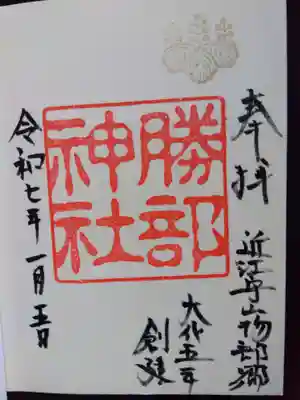 奉拝
近江守山物部郷
大化五年
創建
勝部
神社
令和七年一月五日